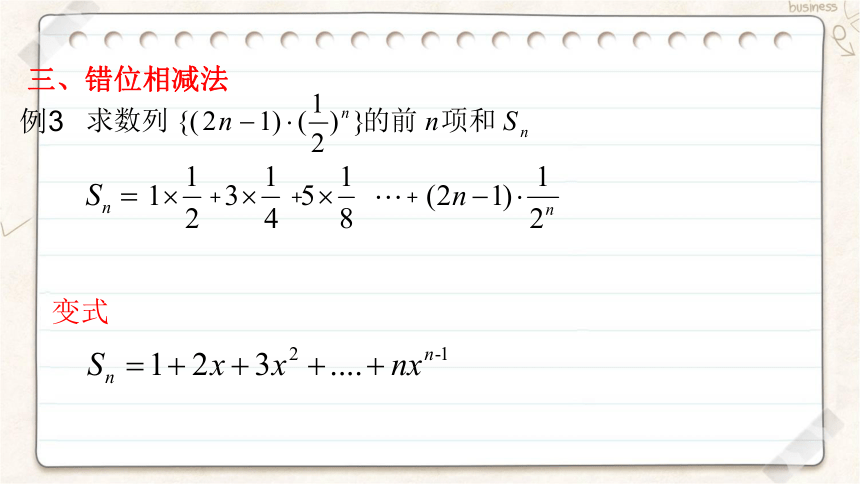 business
三、错位相减法
例3 求数列 {(2n−1)·(1/2)^n}的前 n项和 S_n
S_n = 1×1/2 + 3×1/4 +5×1/8 ⋯+ (2n−1)·1/2^n
变式
S_n = 1+2x+3x^2+....+nx^{n-1}